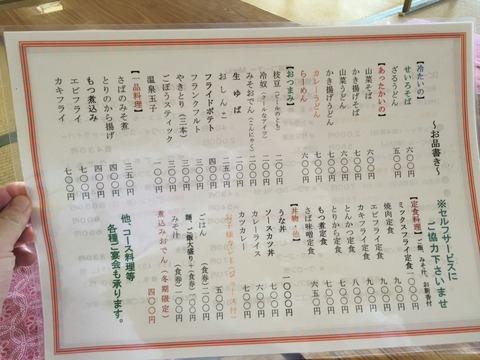 ～お品書き～
【冷たいの】
せいろそば 六〇〇円
ざるうどん 五〇〇円
【あったかいの】
山菜そば 六〇〇円
かき揚げそば 七〇〇円
山菜うどん 六〇〇円
かき揚げうどん 七〇〇円
カレーうどん
らーめん
【おつまみ】
枝豆(ビールのとも) 二〇〇円
冷奴
みそおでん(こんにゃく) 二〇〇円
生ゆば 五〇〇円
おしんこ 二五〇円
フライドポテト 三〇〇円
フランクフルト 三〇〇円
やきとり(三本)
ごぼうスティック
温泉玉子 一〇〇円
【一品料理】
さばのみそ煮 三五〇円
とりのから揚げ 四〇〇円
もつ煮込み 四〇〇円
エビフライ 七〇〇円
カキフライ 七〇〇円
※セルフサービスに
ご協力下さいませ
【定食料理】ご飯、みそ汁、お新香付
ミックスフライ定食 一、〇〇〇円
焼肉定食 九〇〇円
エビフライ定食 九〇〇円
カキフライ定食 九〇〇円
とんかつ定食 八〇〇円
とりから定食 七〇〇円
もつ煮定食 七〇〇円
さば味噌定食 六五〇円
【丼物・他】
うな丼 一、〇〇〇円
ソースカツ丼 七〇〇円
カレーライス 六〇〇円
カツカレー
ごはん (食券)
麺、ご飯大盛り＋(食券)一〇〇円
みそ汁 (食券)一〇〇円
煮込みおでん(冬期限定) 四〇〇円
他、コース料理等
各種ご宴会も承ります。